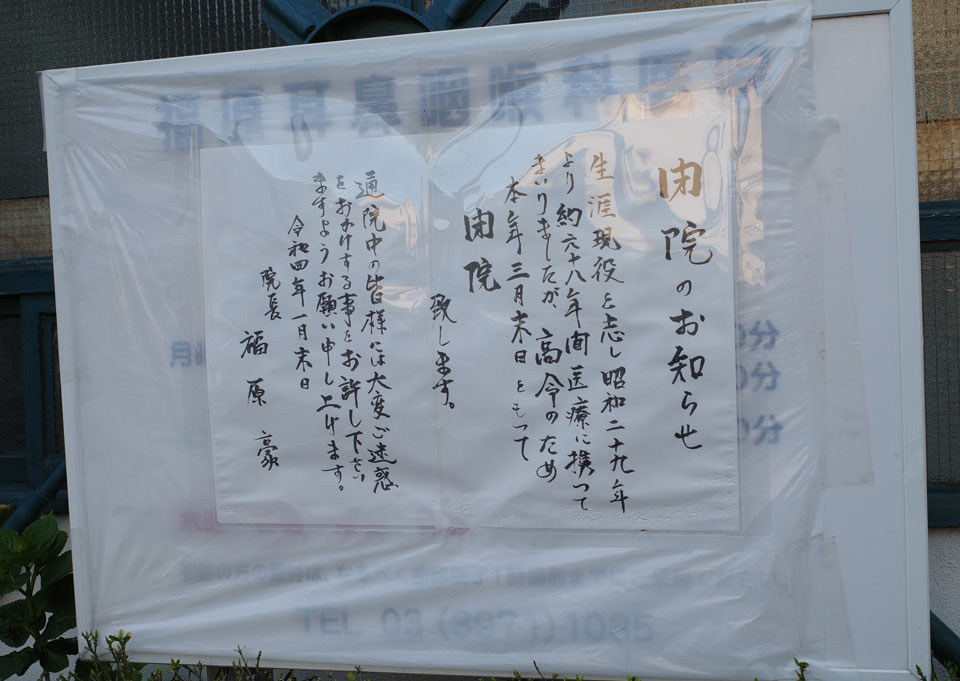 福原耳鼻咽喉科医院
閉院のお知らせ
生涯現役と志し昭和二十九年
より約六十八年間医療に携って
まいりましたが、高令のため
本年三月末日をもって
閉院
致します。
通院中の皆様には大変ご迷惑
をおかけする事をお許し下さい
ますようお願い申し上げます。
令和四年一月末日
院長 福原 豪
月
0分
0分
0分
TEL 03 (3971)1085